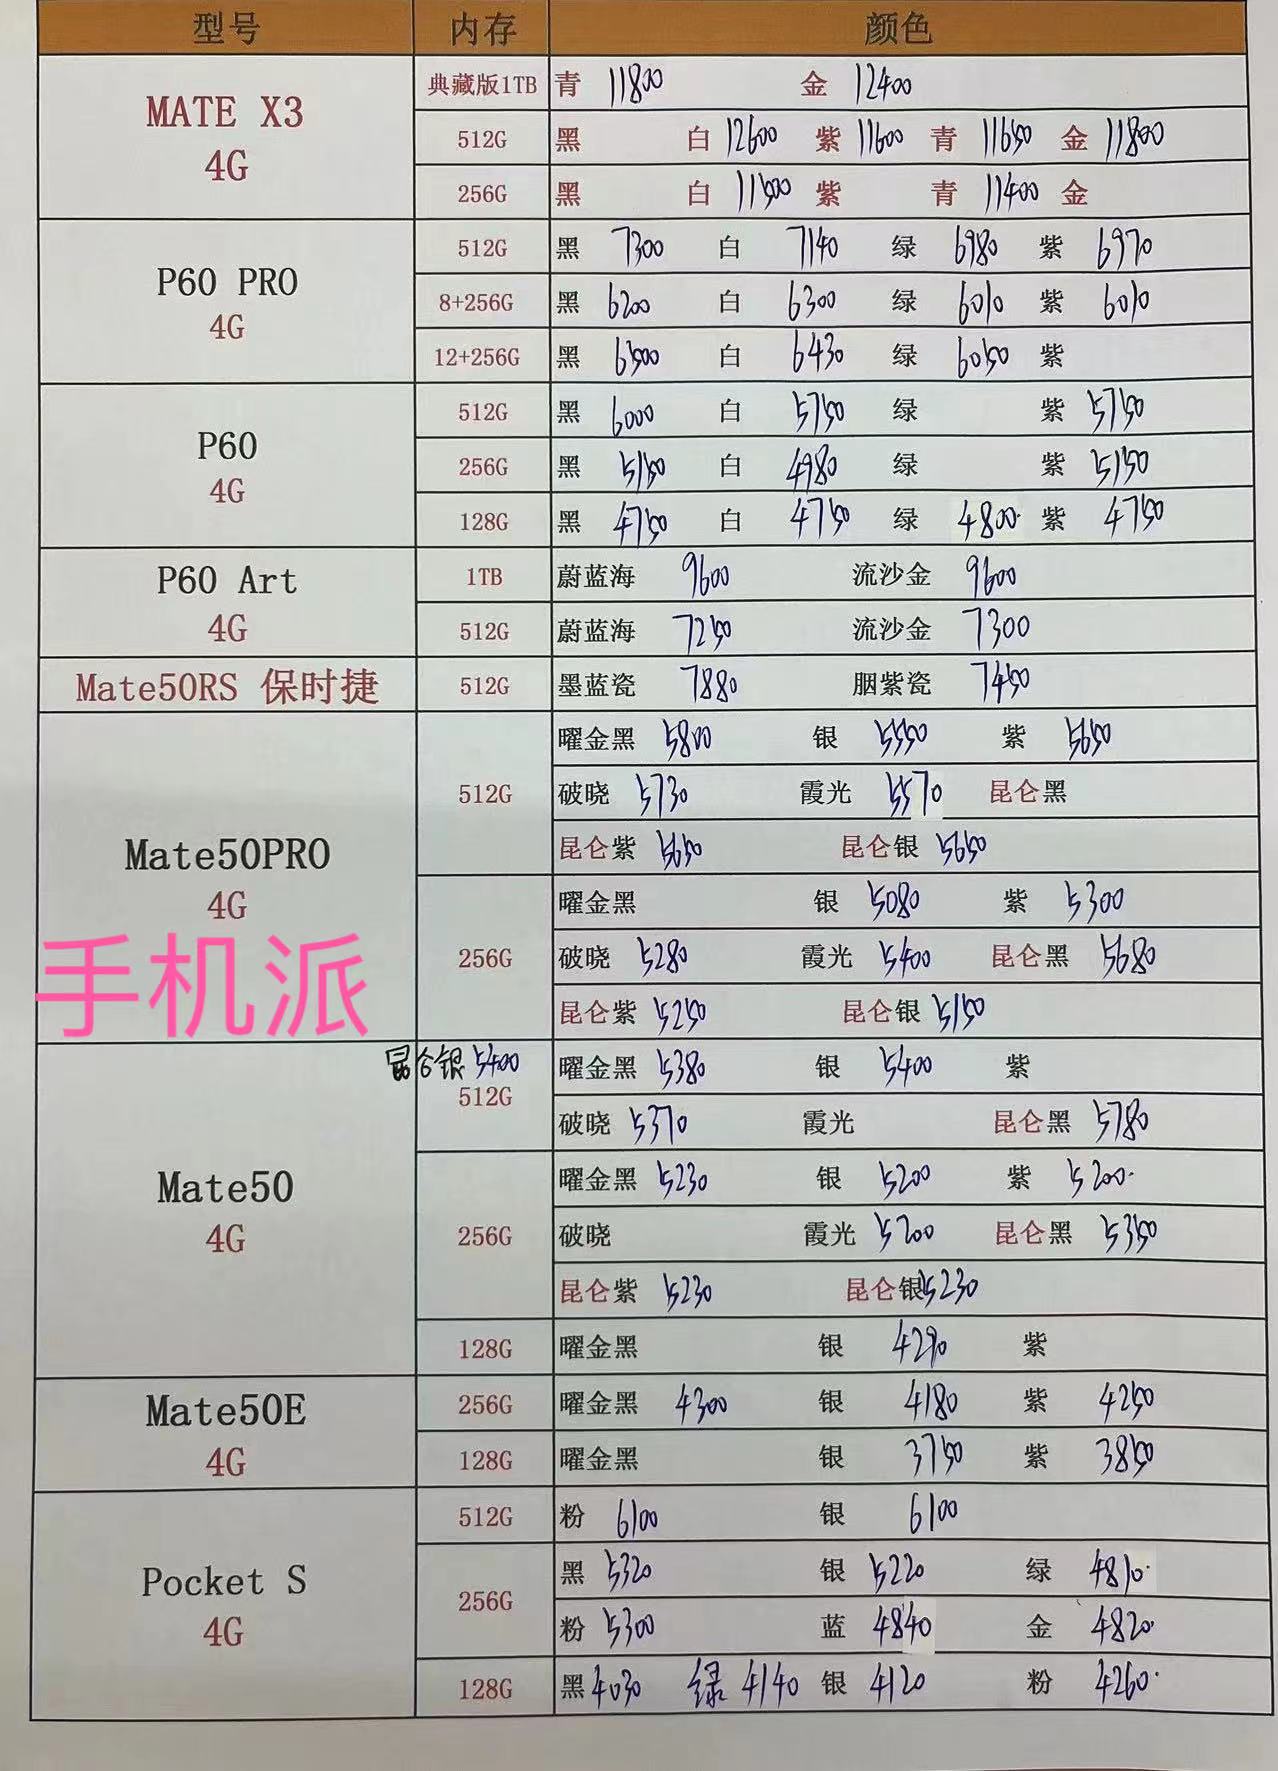 型号 内存 颜色
典藏版1TB 青 11800 金 12400
MATE X3
4G
512G 黑 白 12600 紫 11600 青 11650 金 11800
256G 黑 白 11500 紫 青 11400 金
512G 黑 7300 白 7140 绿 6980 紫 6970
P60 PRO
4G
8+256G 黑 6200 白 6300 绿 6010 紫 6010
12+256G 黑 6500 白 6430 绿 6050 紫
512G 黑 6000 白 5750 绿 紫 5750
P60
4G
256G 黑 5150 白 4980 绿 紫 5150
128G 黑 4750 白 4750 绿 4800 紫 4750
P60 Art
4G
1TB 蔚蓝海 9600 流沙金 9600
512G 蔚蓝海 7250 流沙金 7300
Mate50RS 保时捷 512G 墨蓝瓷 7880 胭紫瓷 7450
曜金黑 5800 银 5550 紫 5650
512G 破晓 5730 霞光 5570 昆仑黑
昆仑紫 5650 昆仑银 5650
Mate50PRO
4G
曜金黑 银 5080 紫 5300
256G 破晓 5280 霞光 5400 昆仑黑 5680
昆仑紫 5250 昆仑银 5150
手机派
昆仑银 5400
512G 曜金黑 5380 银 5400 紫
破晓 5370 霞光 昆仑黑 5780
Mate50
4G
曜金黑 5230 银 5200 紫 5200
256G 破晓 霞光 5200 昆仑黑 5350
昆仑紫 5230 昆仑银 5230
128G 曜金黑 银 4290 紫
Mate50E
4G
256G 曜金黑 4300 银 4180 紫 4250
128G 曜金黑 银 3750 紫 3850
512G 粉 6100 银 6100
Pocket S
4G
256G 黑 5320 银 5220 绿 4810
粉 5300 蓝 4840 金 4820
128G 黑 4030 绿 4140 银 4120 粉 4260